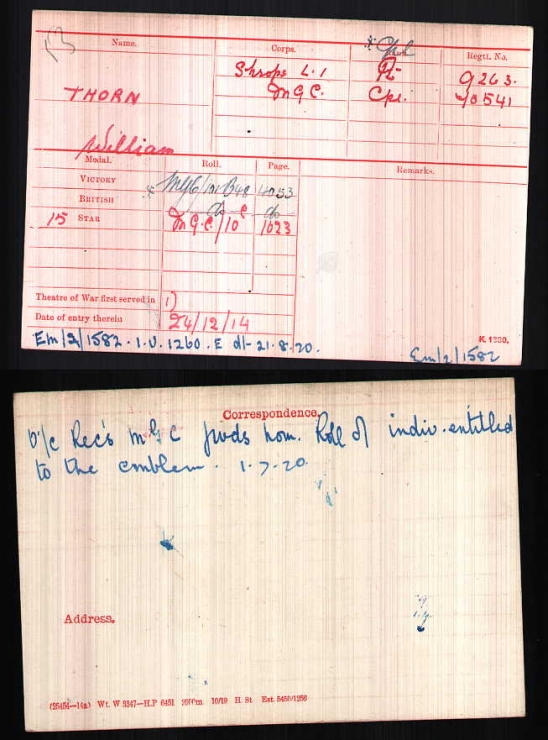 13
Name. Corps. Regtl. No.
* Cpl
Shrops L.I Pt 9263.
THORN M G C. Cpl. 40541
William
Medal. Roll. Page. Remarks.
VICTORY * MGC/101B48 4053
BRITISH do C do
15 STAR M.G.C./10 1023
Theatre of War first served in 1)
Date of entry therein 24/12/14
K. 1380.
Em/2/1582. I.V. 1260. E d/- 21.8.20. Em/2/1582
Correspondence.
O/c Rec's M G C fwds nom. Roll of indiv. entitled
to the emblem. 1.7.20.
Address.
(25454—14a) Wt. W 3347—H.P 6451 10/19 H. St